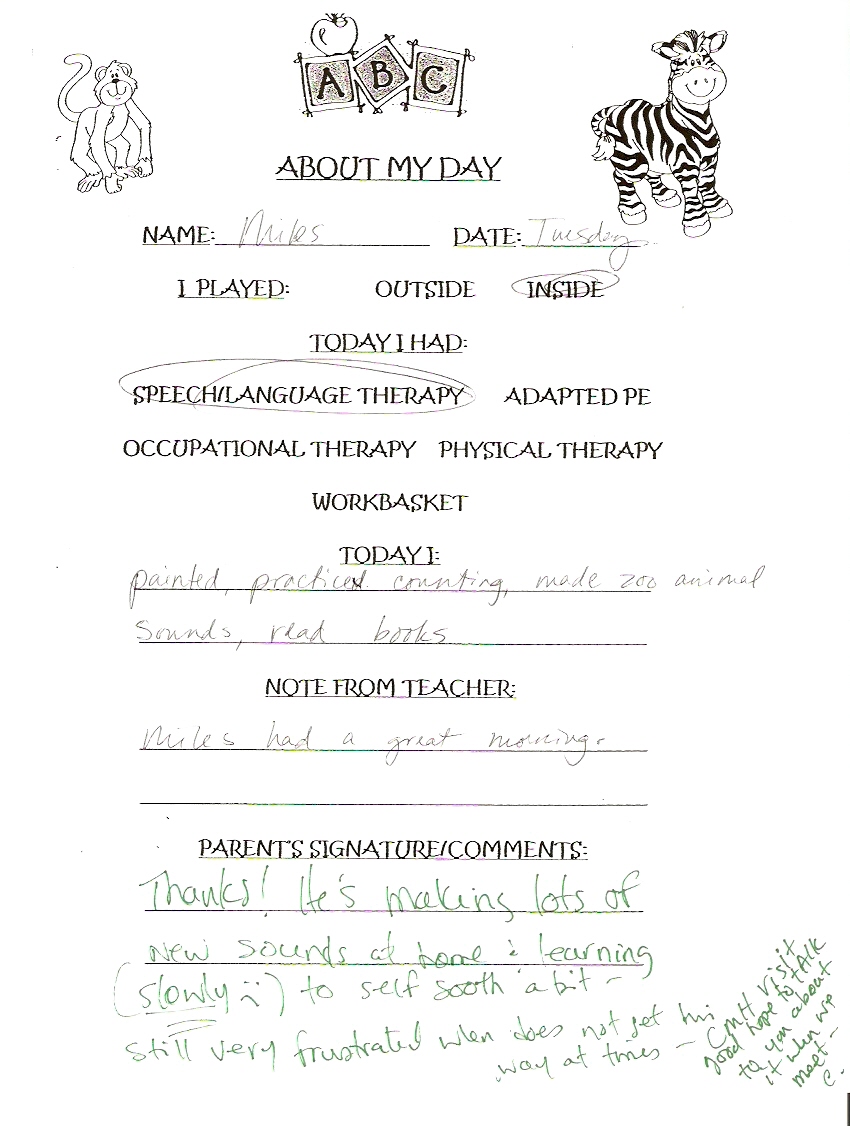 A B C
ABOUT MY DAY
NAME: Miles DATE: Tuesday
I PLAYED: OUTSIDE INSIDE
TODAY I HAD:
SPEECH/LANGUAGE THERAPY ADAPTED PE
OCCUPATIONAL THERAPY PHYSICAL THERAPY
WORKBASKET
TODAY I:
painted, practiced counting, made zoo animal
sounds, read books
NOTE FROM TEACHER:
Miles had a great morning.
PARENT'S SIGNATURE/COMMENTS:
Thanks! He's making lots of
new sounds at home & learning
(slowly :() to self sooth a bit -
still very frustrated when does not get his
way at times -
CMH visit
good hope to talk
to you about
it when we
meet -
C.